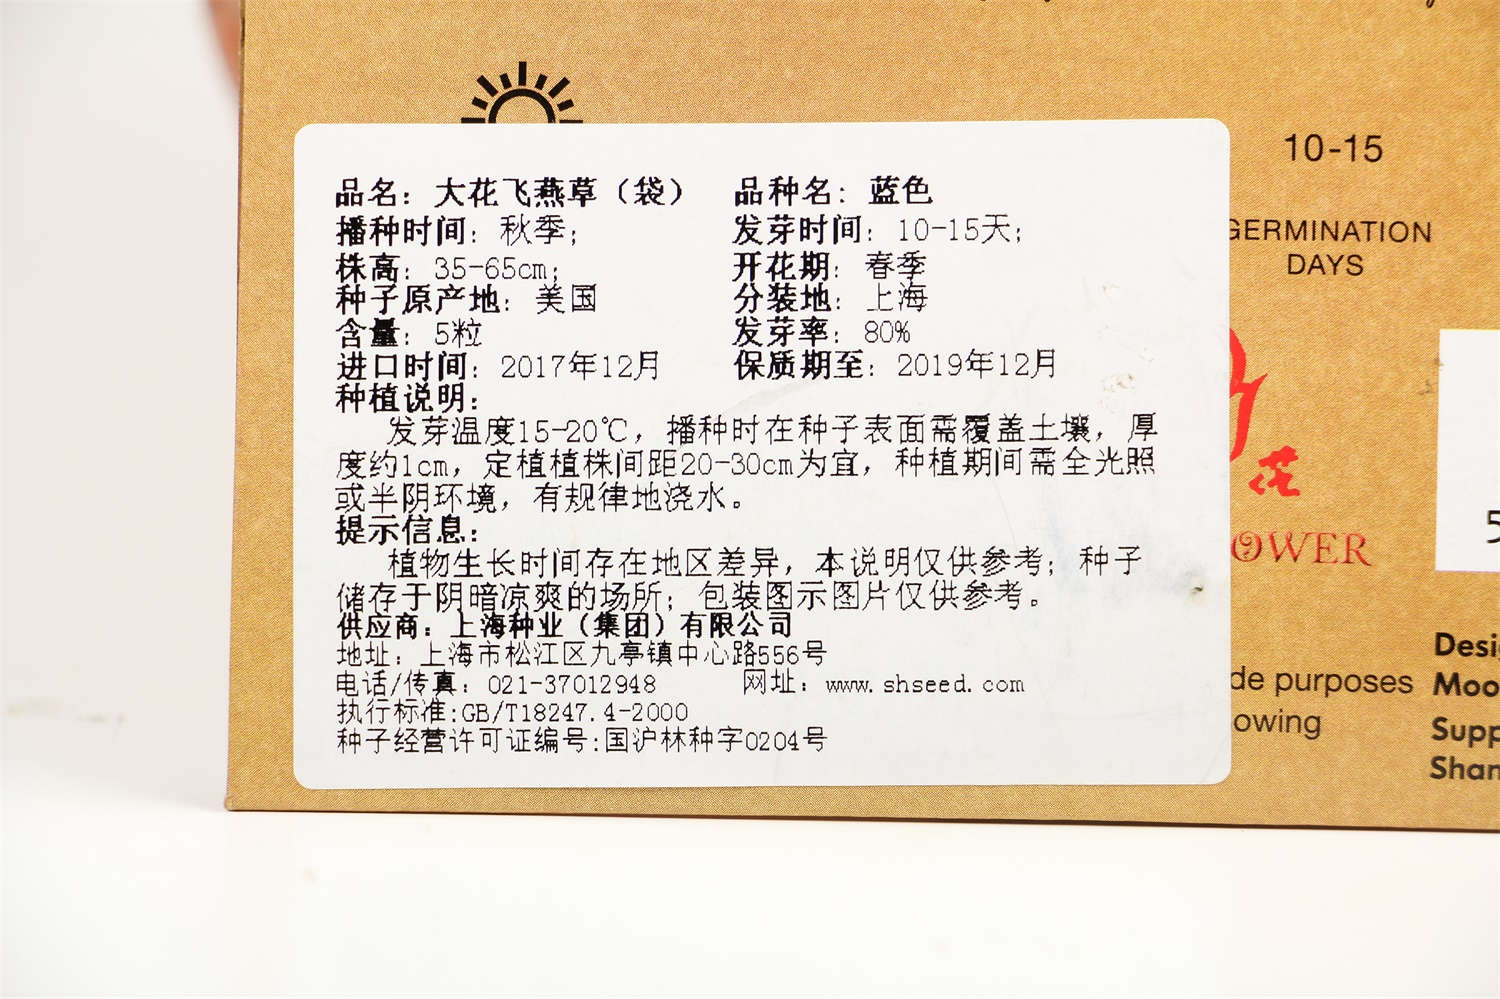 品名：大花飞燕草（袋） 品种名：蓝色
播种时间：秋季； 发芽时间：10-15天；
株高：35-65cm； 开花期：春季
种子原产地：美国 分装地：上海
含量：5粒 发芽率：80%
进口时间：2017年12月 保质期至：2019年12月
种植说明：
发芽温度15-20℃，播种时在种子表面需覆盖土壤，厚
度约1cm，定植植株间距20-30cm为宜，种植期间需全光照
或半阴环境，有规律地浇水。
提示信息：
植物生长时间存在地区差异，本说明仅供参考；种子
储存于阴暗凉爽的场所；包装图示图片仅供参考。
供应商：上海种业（集团）有限公司
地址：上海市松江区九亭镇中心路556号
电话/传真：021-37012948 网址：www.shseed.com
执行标准:GB/T18247.4-2000
种子经营许可证编号:国沪林种字0204号
10-15
GERMINATION
DAYS
花
OWER
5
de purposes
owing
Desi
Moo
Supp
Shan